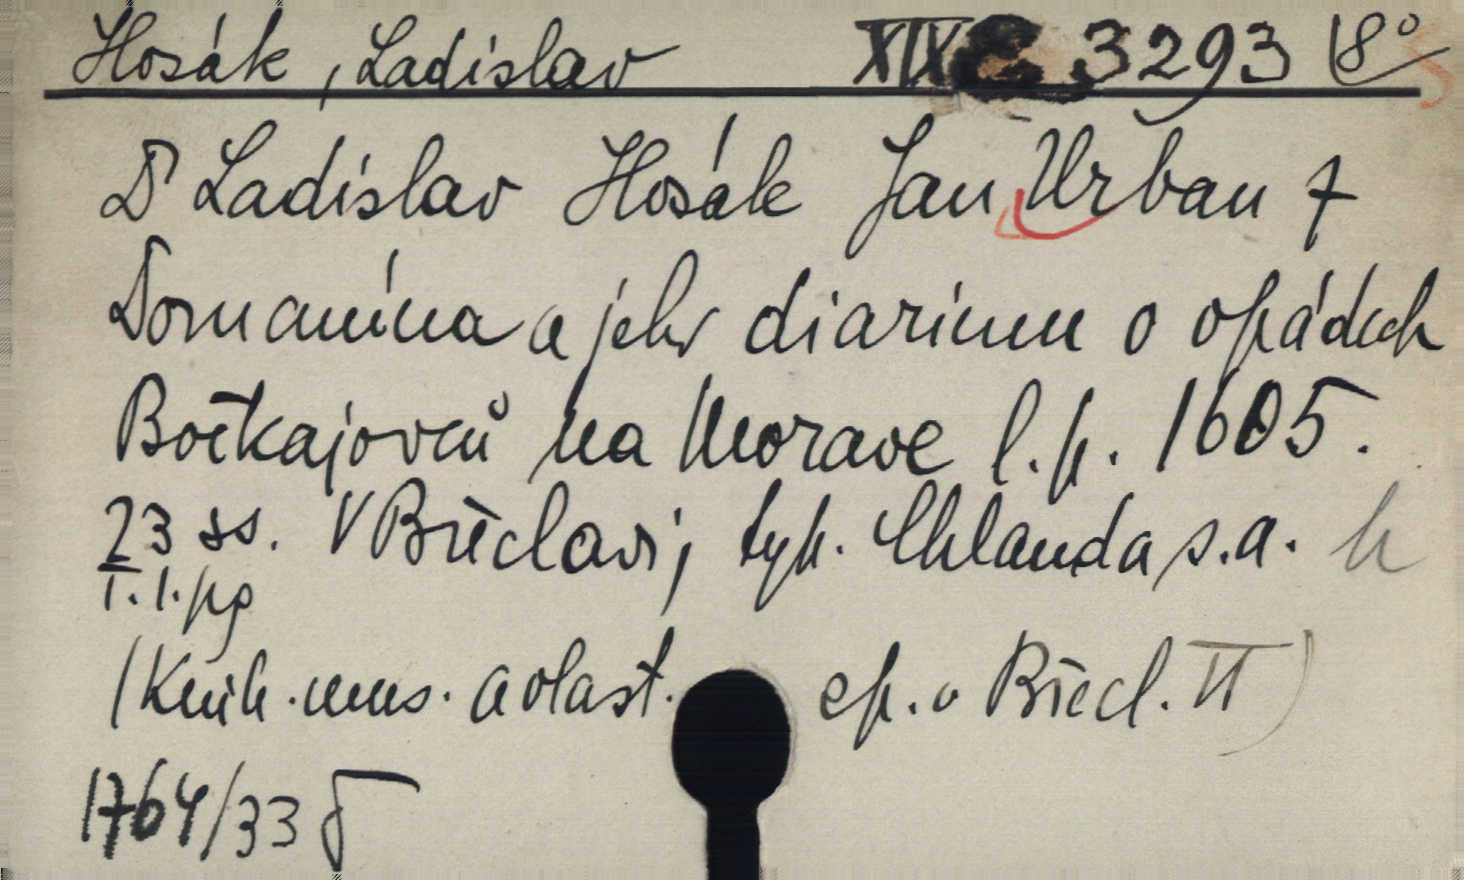 Hosák, Ladislav XIX E 3293 8°
Dr Ladislav Hosák Jan Urban z
Domanína a jeho diarium o vpádech
Bočkajovců na Moravě l. p. 1605.
23 ss. V Břeclavi, typ. Chlanda s.a.
T. 1. pg
(Knih. mus. a vlast. sp. v Břecl. II)
1764/33